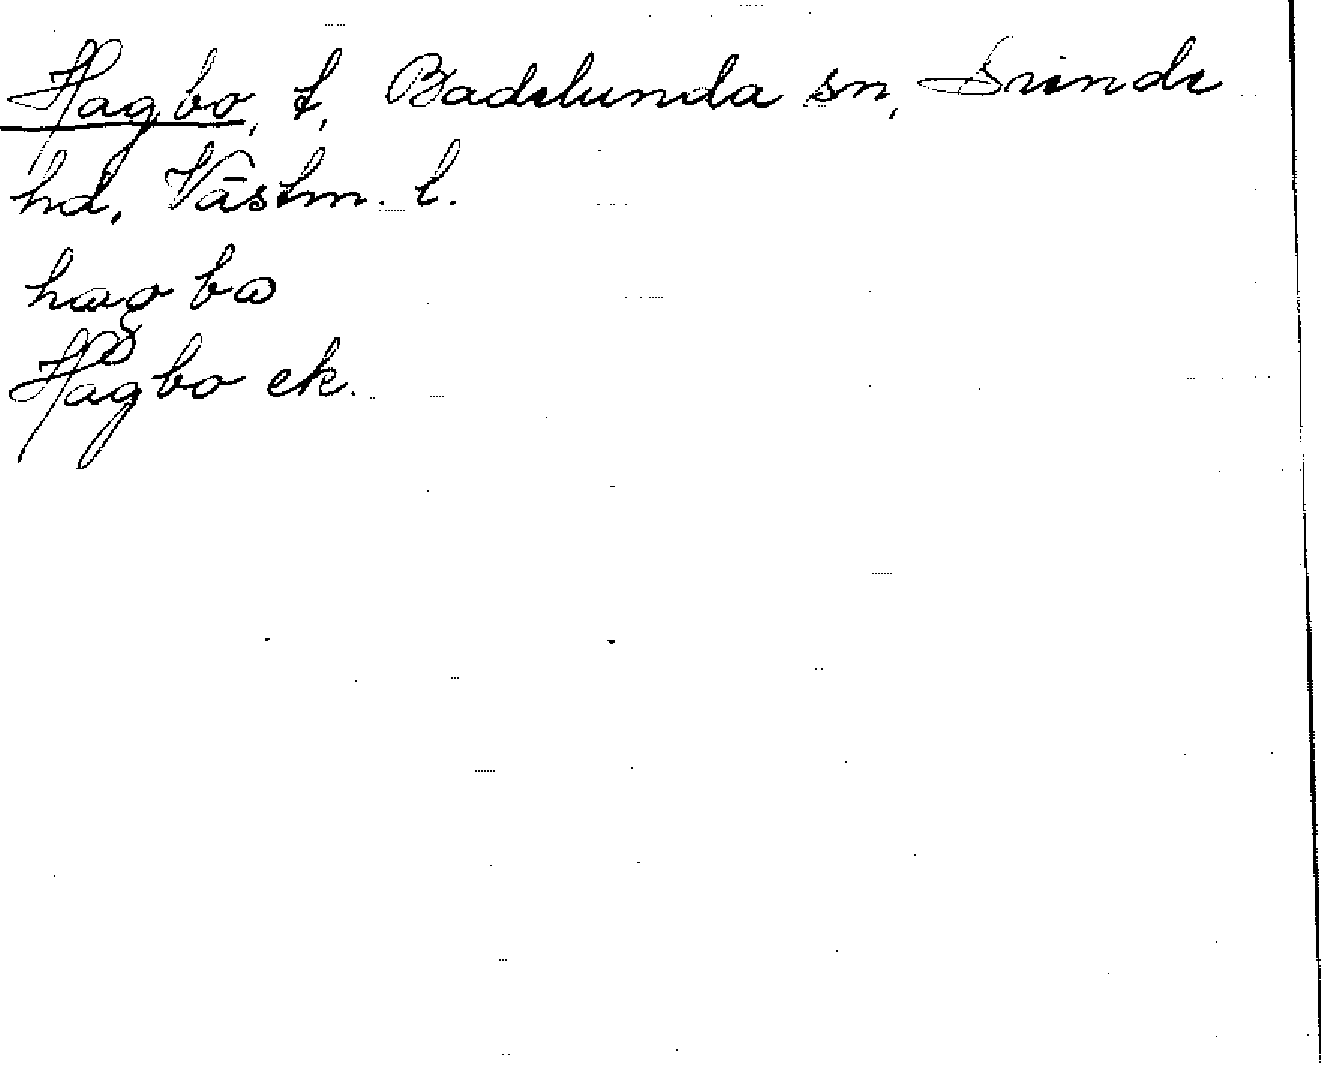 Hagbo, t, Badelunda sn, Siende
hd, Västm. l.
Hagbo ek.